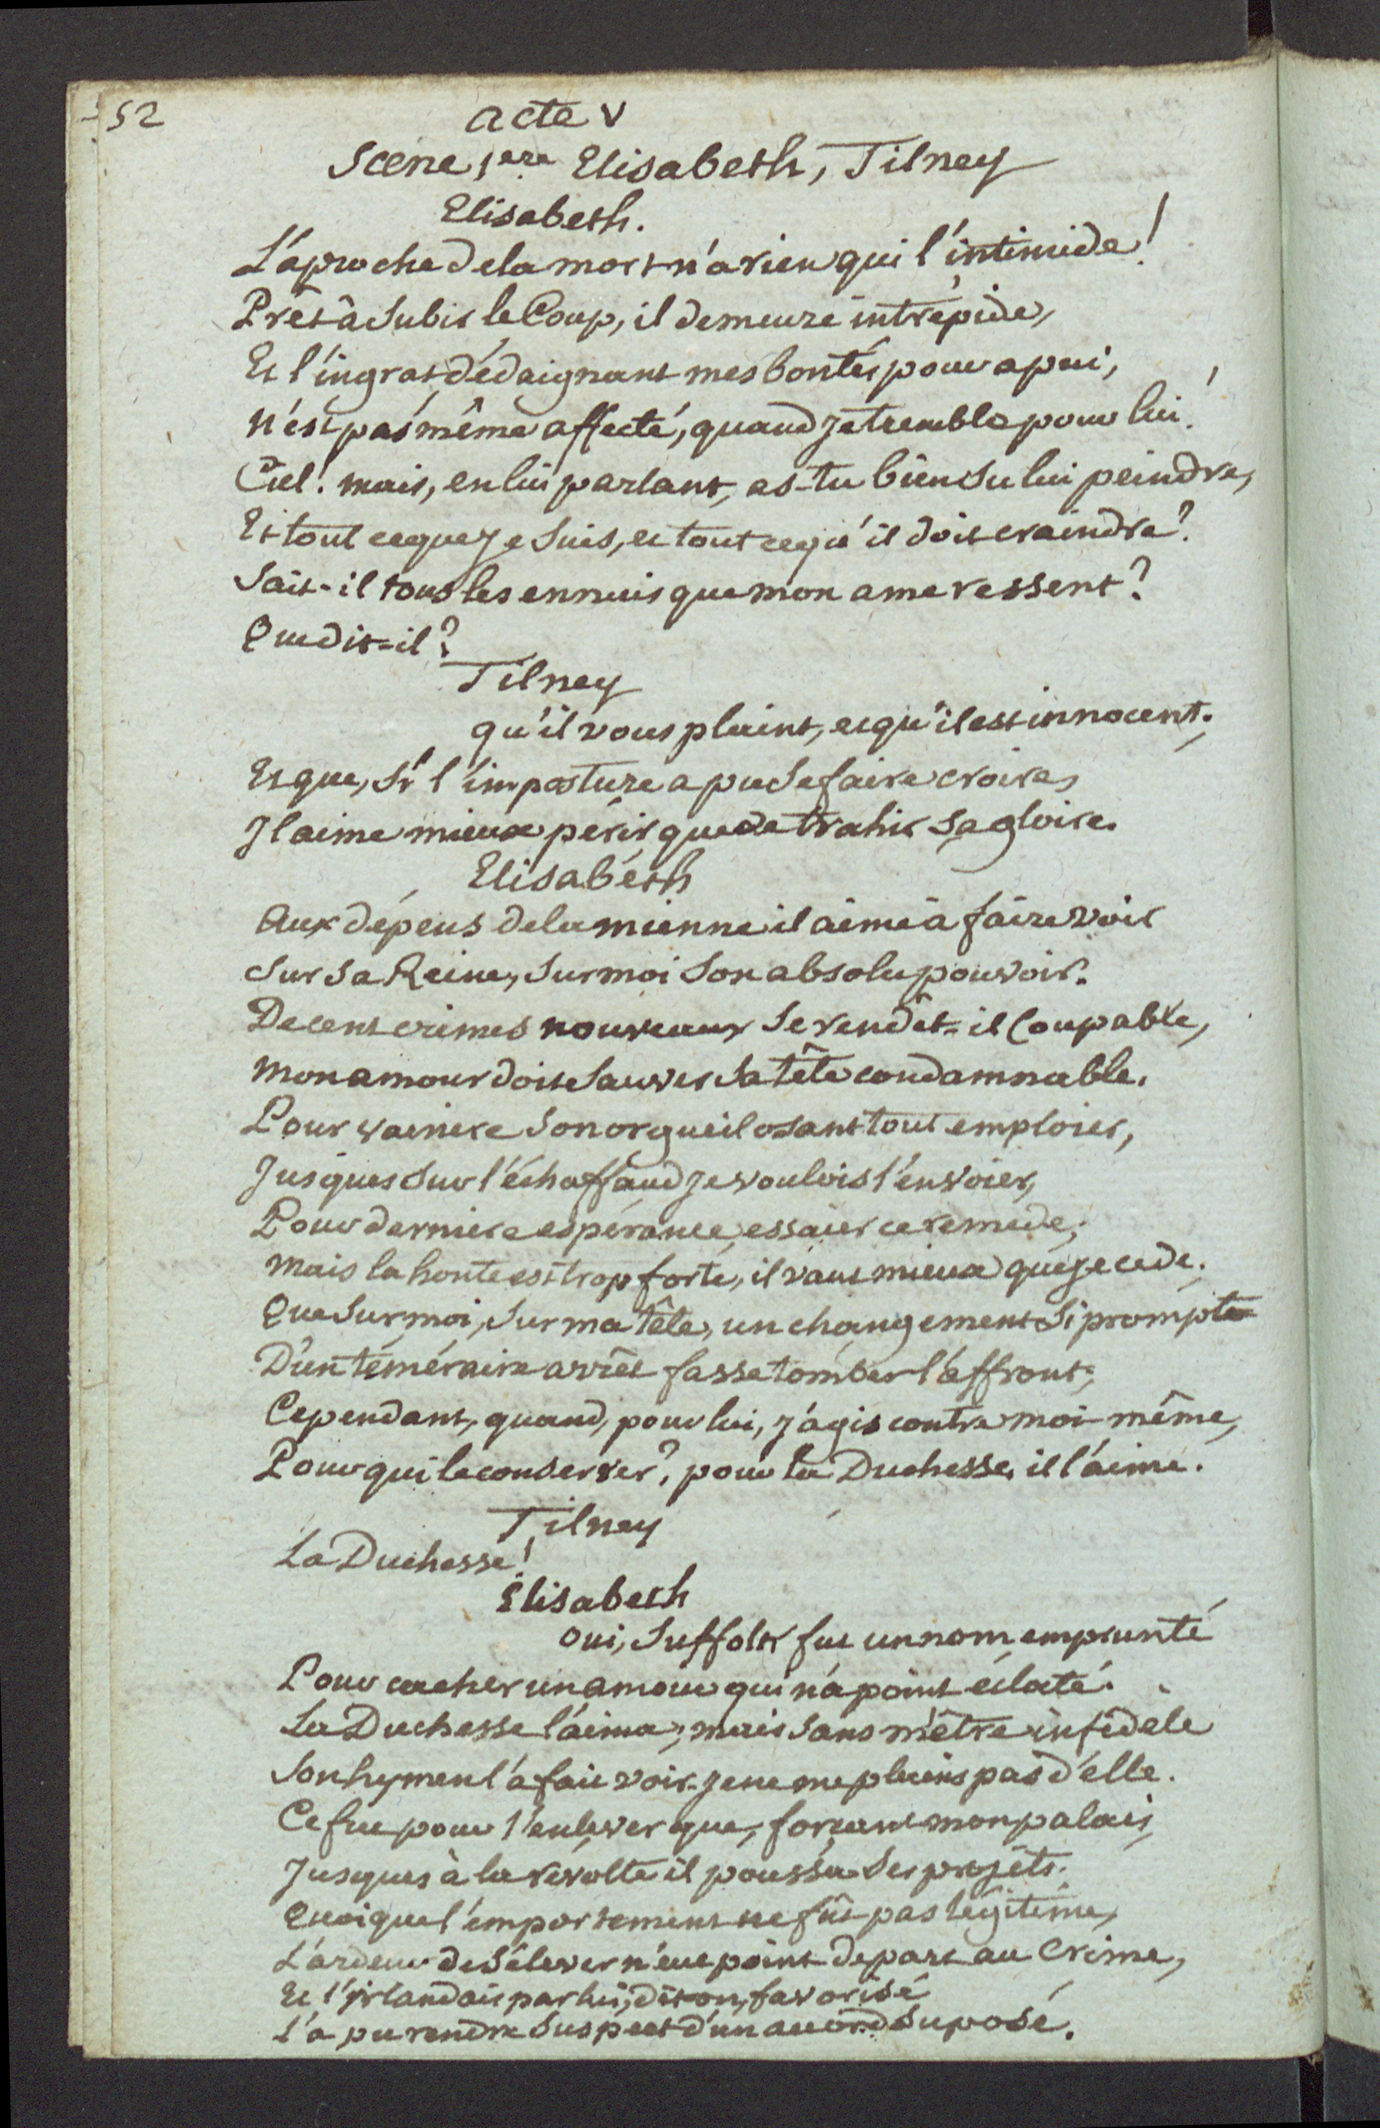 52
acte V
Scene 1ere Elisabeth, Tilney
Elisabeth.
L'aproche de la mort n'a rien qui l'intimide!
Prêt à subir le Coup, il demeure intrépide,
Et l'ingrat dédaignant mes bontés pour apui,
n'est pas même affecté, quand je tremble pour lui!
Ciel! mais, en lui parlant, as-tu bien su lui peindre,
Et tout ce que je suis, et tout ce qu'il doit craindre?
Sait-il tous les ennuis que mon ame ressent?
Que dit-il?
Tilney
qu'il vous plaint, et qu'il est innocent;
Et que, si l'imposture a pu se faire croire,
Il aime mieux périr que de trahir sa gloire.
Elisabeth
Aux dépens de la mienne il aime à faire voir
Sur sa Reine, sur moi son absolu pouvoir.
De cent crimes nouveaux se rendît-il Coupable,
mon amour doit sauver sa tête condamnable.
Pour vaincre son orgueil osant tout emploier,
Jusques sur l'échaffaud je voulois l'envoier,
Pour derniere espérance, essaier ce remede;
mais la honte est trop forte, il vaut mieux que je cede.
Que sur moi, sur ma tête, un changement si prompt
D'un téméraire arrêt fasse tomber l'affront;
Cependant, quand, pour lui, j'agis contre moi-même,
Pour qui le conserver? pour la Duchesse, il l'aime.
Tilney
La Duchesse!
Elisabeth
oui, Suffolk fut un nom emprunté
Pour cacher un amour qui n'a point éclaté.
La Duchesse l'aima, mais sans m'être infidele
Son hymen l'a fait voir. je ne me plains pas d'elle.
Ce fut pour l'enlever que, forçant mon palais,
Jusques à la révolte il poussa ses projets.
Quoique l'emportement ne fût pas légitime,
L'ardeur de s'élever n'eut point de part au Crime,
Et l'yrlandois par lui, dit on, favorisé
l'a pu rendre suspect d'un accord suposé.